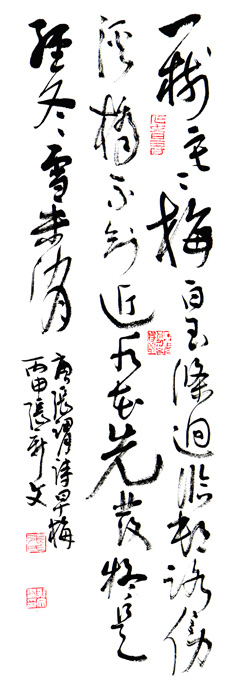 一樹寒梅白玉條迥臨村路傍
溪橋不知近水花先發疑是
經冬雪未消
唐張謂詩早梅
丙申張新文